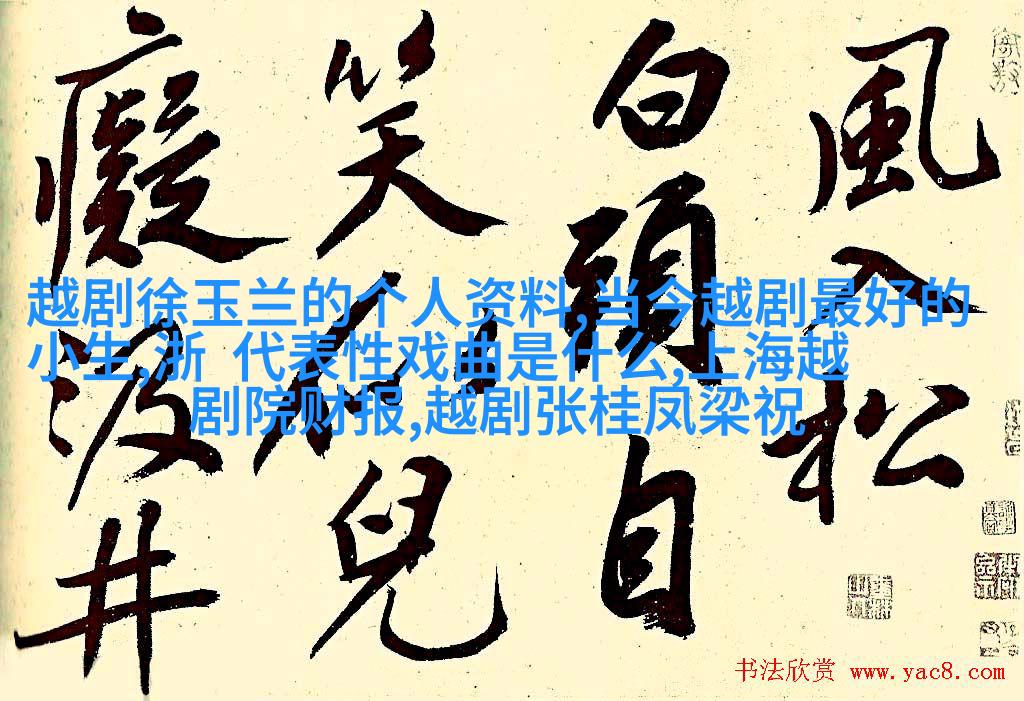 風入松
白頭自
笑 兒
癡汲井
越剧徐玉兰的个人资料,当今越剧最好的
小生,浙 代表性戏曲是什么,上海越
剧院财报,越剧张桂凤梁祝
书法欣赏 www.yac8.com